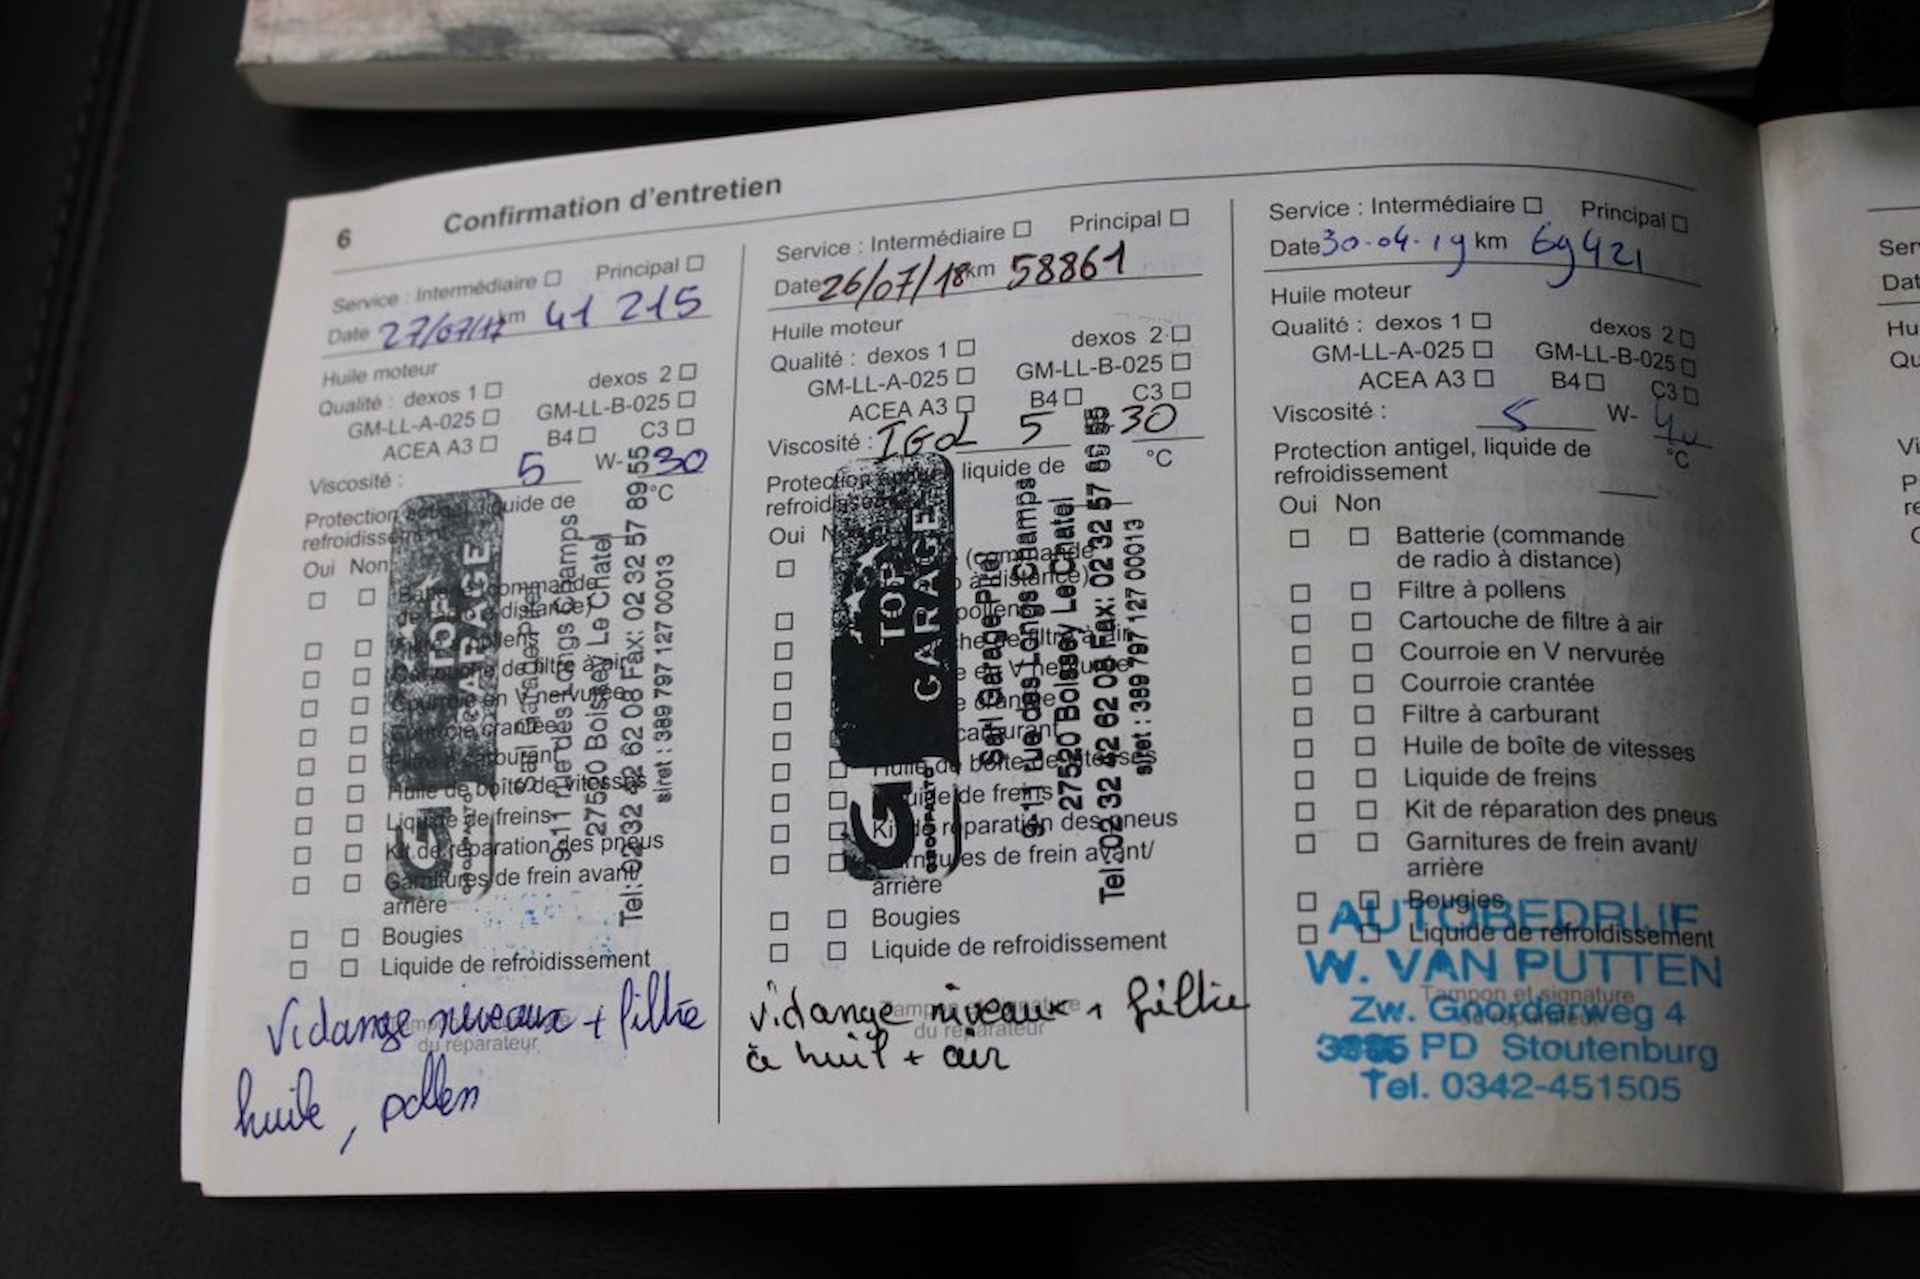 6 Confirmation d'entretien
Service : Intermédiaire ☐ Principal ☐
Date 27/07/17 km 41 215
Huile moteur
Qualité : dexos 1 ☐ dexos 2 ☐
GM-LL-A-025 ☐ GM-LL-B-025 ☐
ACEA A3 ☐ B4 ☐ C3 ☐
Viscosité : 5 W- 30
Protection antigel, liquide de °C
refroidissement
Oui Non
☐ ☐ Batterie (commande
de radio à distance)
☐ ☐ Filtre à pollens
☐ ☐ Cartouche de filtre à air
☐ ☐ Courroie en V nervurée
☐ ☐ Courroie crantée
☐ ☐ Filtre à carburant
☐ ☐ Huile de boîte de vitesses
☐ ☐ Liquide de freins
☐ ☐ Kit de réparation des pneus
☐ ☐ Garnitures de frein avant/
arrière
☐ ☐ Bougies
☐ ☐ Liquide de refroidissement
du réparateur
Vidange niveaux + filtre
huile, pollen
TOP
GARAGE
G
GROUPAUTO
9-11 rue des Longs Champs
27520 Boissey Le Chatel
Tel: 02 32 42 62 08 Fax: 02 32 57 89 55
siret : 389 797 127 00013
Service : Intermédiaire ☐ Principal ☐
Date 26/07/18 km 58861
Huile moteur
Qualité : dexos 1 ☐ dexos 2 ☐
GM-LL-A-025 ☐ GM-LL-B-025 ☐
ACEA A3 ☐ B4 ☐ C3 ☐
Viscosité : IGOL 5 30
Protection liquide de °C
refroidissement
Oui
☐ (commande
à distance)
☐ pollens
☐ de filtre à air
☐ en V nervurée
☐ crantée
☐ carburant
☐ ☐ Huile de boîte de vitesses
☐ ☐ Liquide de freins
☐ ☐ Kit de réparation des pneus
☐ ☐ Garnitures de frein avant/
arrière
☐ ☐ Bougies
☐ ☐ Liquide de refroidissement
Tampon et signature
du réparateur
Vidange niveaux + filtre
à huil + air
TOP
GARAGE
G
GROUPAUTO
Sarl Garage
9-11 rue des Longs Champs
27520 Boissey Le Chatel
Tel: 02 32 42 62 08 Fax: 02 32 57 89 55
siret : 389 797 127 00013
Service : Intermédiaire ☐ Principal ☐
Date 30-04-19 km 69421
Huile moteur
Qualité : dexos 1 ☐ dexos 2 ☐
GM-LL-A-025 ☐ GM-LL-B-025 ☐
ACEA A3 ☐ B4 ☐ C3 ☐
Viscosité : 5 W- 40
Protection antigel, liquide de °C
refroidissement
Oui Non
☐ ☐ Batterie (commande
de radio à distance)
☐ ☐ Filtre à pollens
☐ ☐ Cartouche de filtre à air
☐ ☐ Courroie en V nervurée
☐ ☐ Courroie crantée
☐ ☐ Filtre à carburant
☐ ☐ Huile de boîte de vitesses
☐ ☐ Liquide de freins
☐ ☐ Kit de réparation des pneus
☐ ☐ Garnitures de frein avant/
arrière
☐ ☐ Bougies
☐ ☐ Liquide de refroidissement
Tampon et signature
AUTOBEDRIJF
W. VAN PUTTEN
Zw. Goorderweg 4
PD Stoutenburg
Tel. 0342-451505